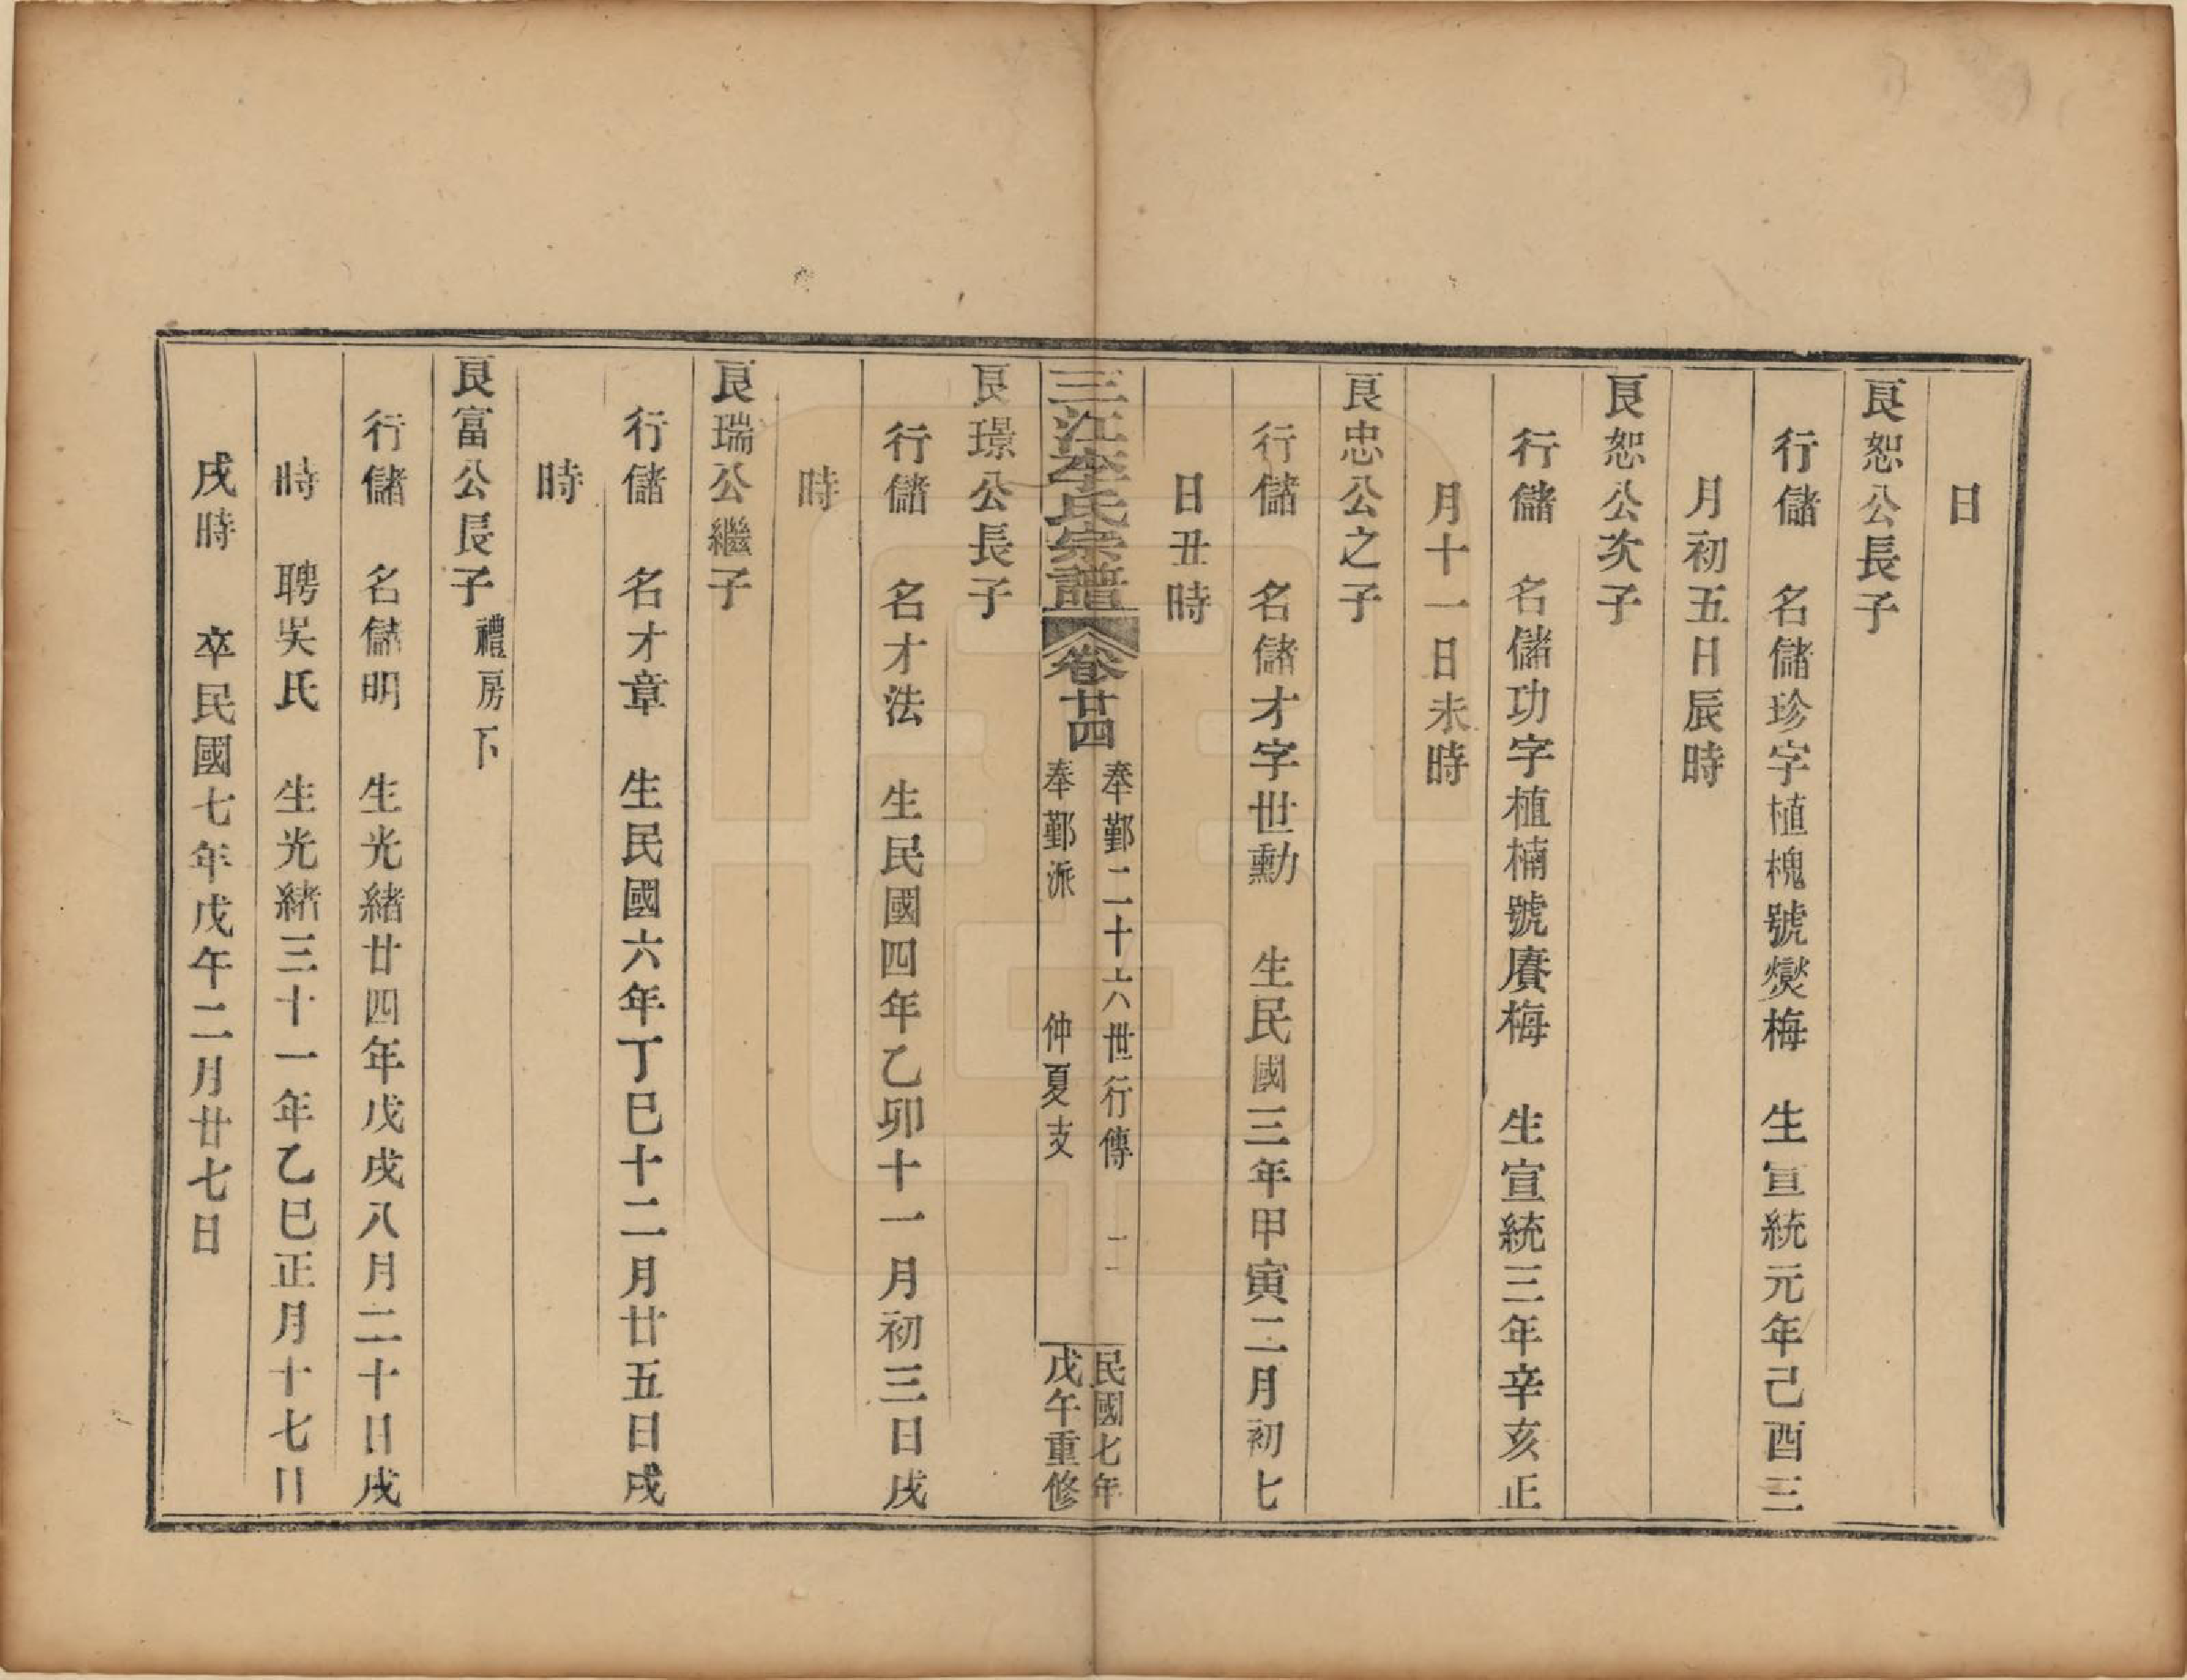 日
良恕公長子
行儲　名儲珍字植槐號爕梅　生宣統元年己酉三
月初五日辰時
良恕公次子
行儲　名儲功字植楠號賡梅　生宣統三年辛亥正
月十一日未時
良忠公之子
行儲　名儲才字世勳　生民國三年甲寅二月初七
日丑時
三江李氏宗譜
卷廿四
奉鄞二十六世行傳
奉鄞派　仲夏支
民國七年
戊午重修
良璟公長子
行儲　名才法　生民國四年乙卯十一月初三日戌
時
良瑞公繼子
行儲　名才章　生民國六年丁巳十二月廿五日戌
時
良富公長子禮房下
行儲　名儲明　生光緒廿四年戊戌八月二十日戌
時　聘吳氏　生光緒三十一年乙巳正月十七日
戌時　卒民國七年戊午二月廿七日